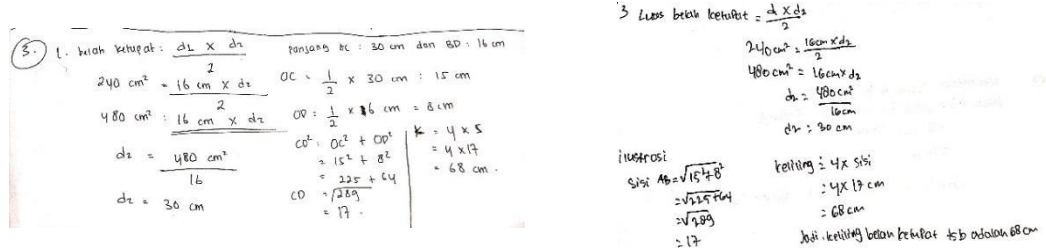 3. L. belah ketupat : d1 x d2
2
240 cm² = 16 cm x d2
2
480 cm² : 16 cm x d2
d2 = 480 cm²
16
d2 = 30 cm
panjang AC : 30 cm dan BD : 16 cm
OC = 1/2 x 30 cm : 15 cm
OD : 1/2 x 16 cm = 8 cm
CD² : OC² + OD²
= 15² + 8²
= 225 + 64
CD = √289
= 17.
K = 4 x S
= 4 x 17
= 68 cm.
3 Luas belah ketupat = d x d2
2
240 cm² = 16cm x d2
2
480 cm² = 16cm x d2
d2 = 480 cm²
16cm
d2 : 30 cm
ilustrasi
Sisi AB = √15²+8²
= √225+64
= √289
= 17
keliling : 4x sisi
: 4x 17 cm
: 68 cm
Jadi, keliling belah ketupat tsb adalah 68 cm